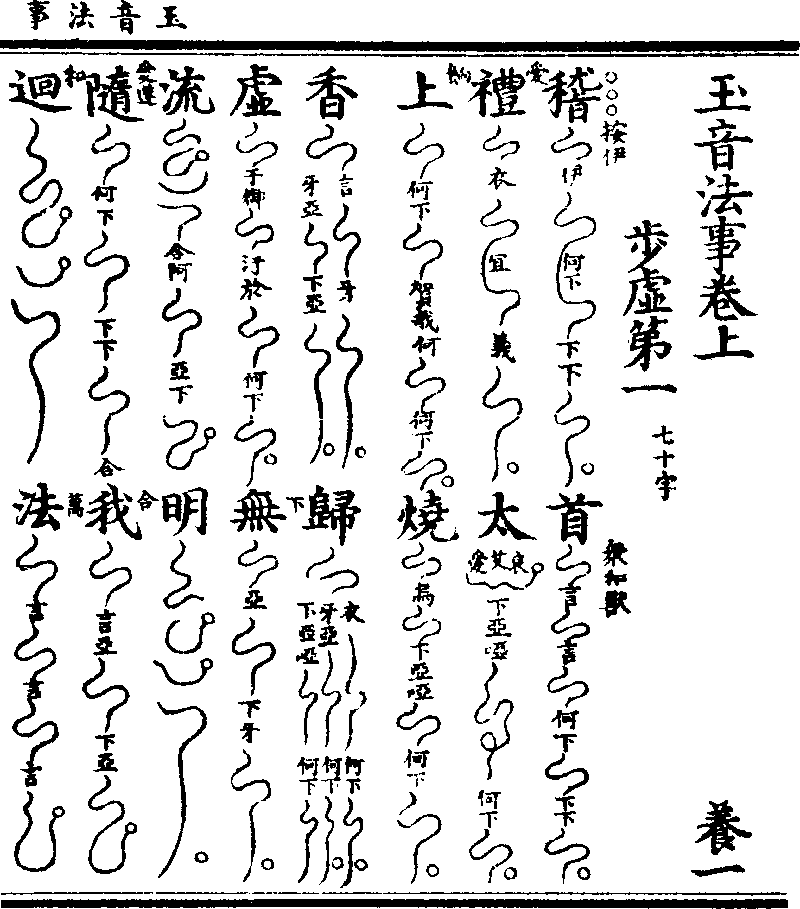 玉音法事
玉音法事卷上 養一
步虛第一 七十字
○○○按伊
稽 伊 何下 下下 首 言 言 何下 下下
愛 禮 衣 宜 義 太 哀艾愛 下亞啞 何下
上 何下 賀哉何 何下 燒 下亞啞 何下
香 言 牙 牙亞 下亞 歸 衣 牙亞 下亞啞 何下 何下 何下
虛 于御 汙於 何下 下 無 亞 下牙
流 含阿 亞下 明
隨 何下 下下 合 合 我 言亞 下亞
和 迴 萬 法 言 言 言